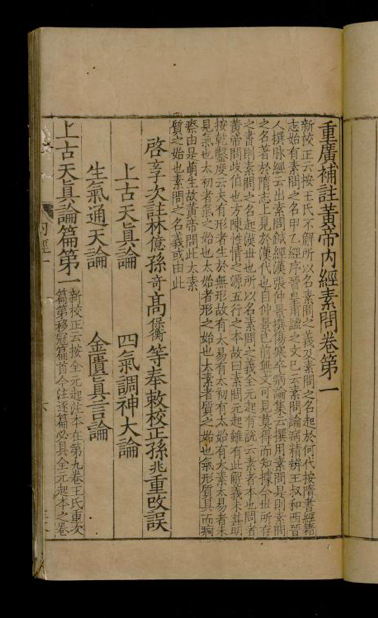 重廣補註黃帝內經素問卷第一
新校正云按王氏不解所以名素問之義及素問之名起於何代按隋書經籍
志始有素問之名甲乙經序晉皇甫謐之文已云素問論病精辨王叔和西晉
人撰脉經云出素問鍼經漢張仲景撰傷寒卒病論集云撰用素問是則素問
之名著於隋志上見於漢代也自仲景已前無文可見莫得而知據今世所存
之書則素問之名起漢世也所以名素問之義全元起有說云素者本也問者
黃帝問岐伯也方陳性情之源五行之本故曰素問元起雖有此解義未甚明
按乾鑿度云夫有形者生於無形故有太易有太初有太始有太素太易者未
見氣也太初者氣之始也太始者形之始也太素者質之始也氣形質具而痾
瘵由是萌生故黃帝問此太素
質之始也素問之名義或由此
啓玄子次註林億孫奇高保衡等奉敕校正孫兆重改誤
上古天真論 四氣調神大論
生氣通天論 金匱真言論
上古天真論篇第一
新校正云按全元起注本在第九卷王氏重次
篇第移冠篇首今注逐篇必具全元起本之卷